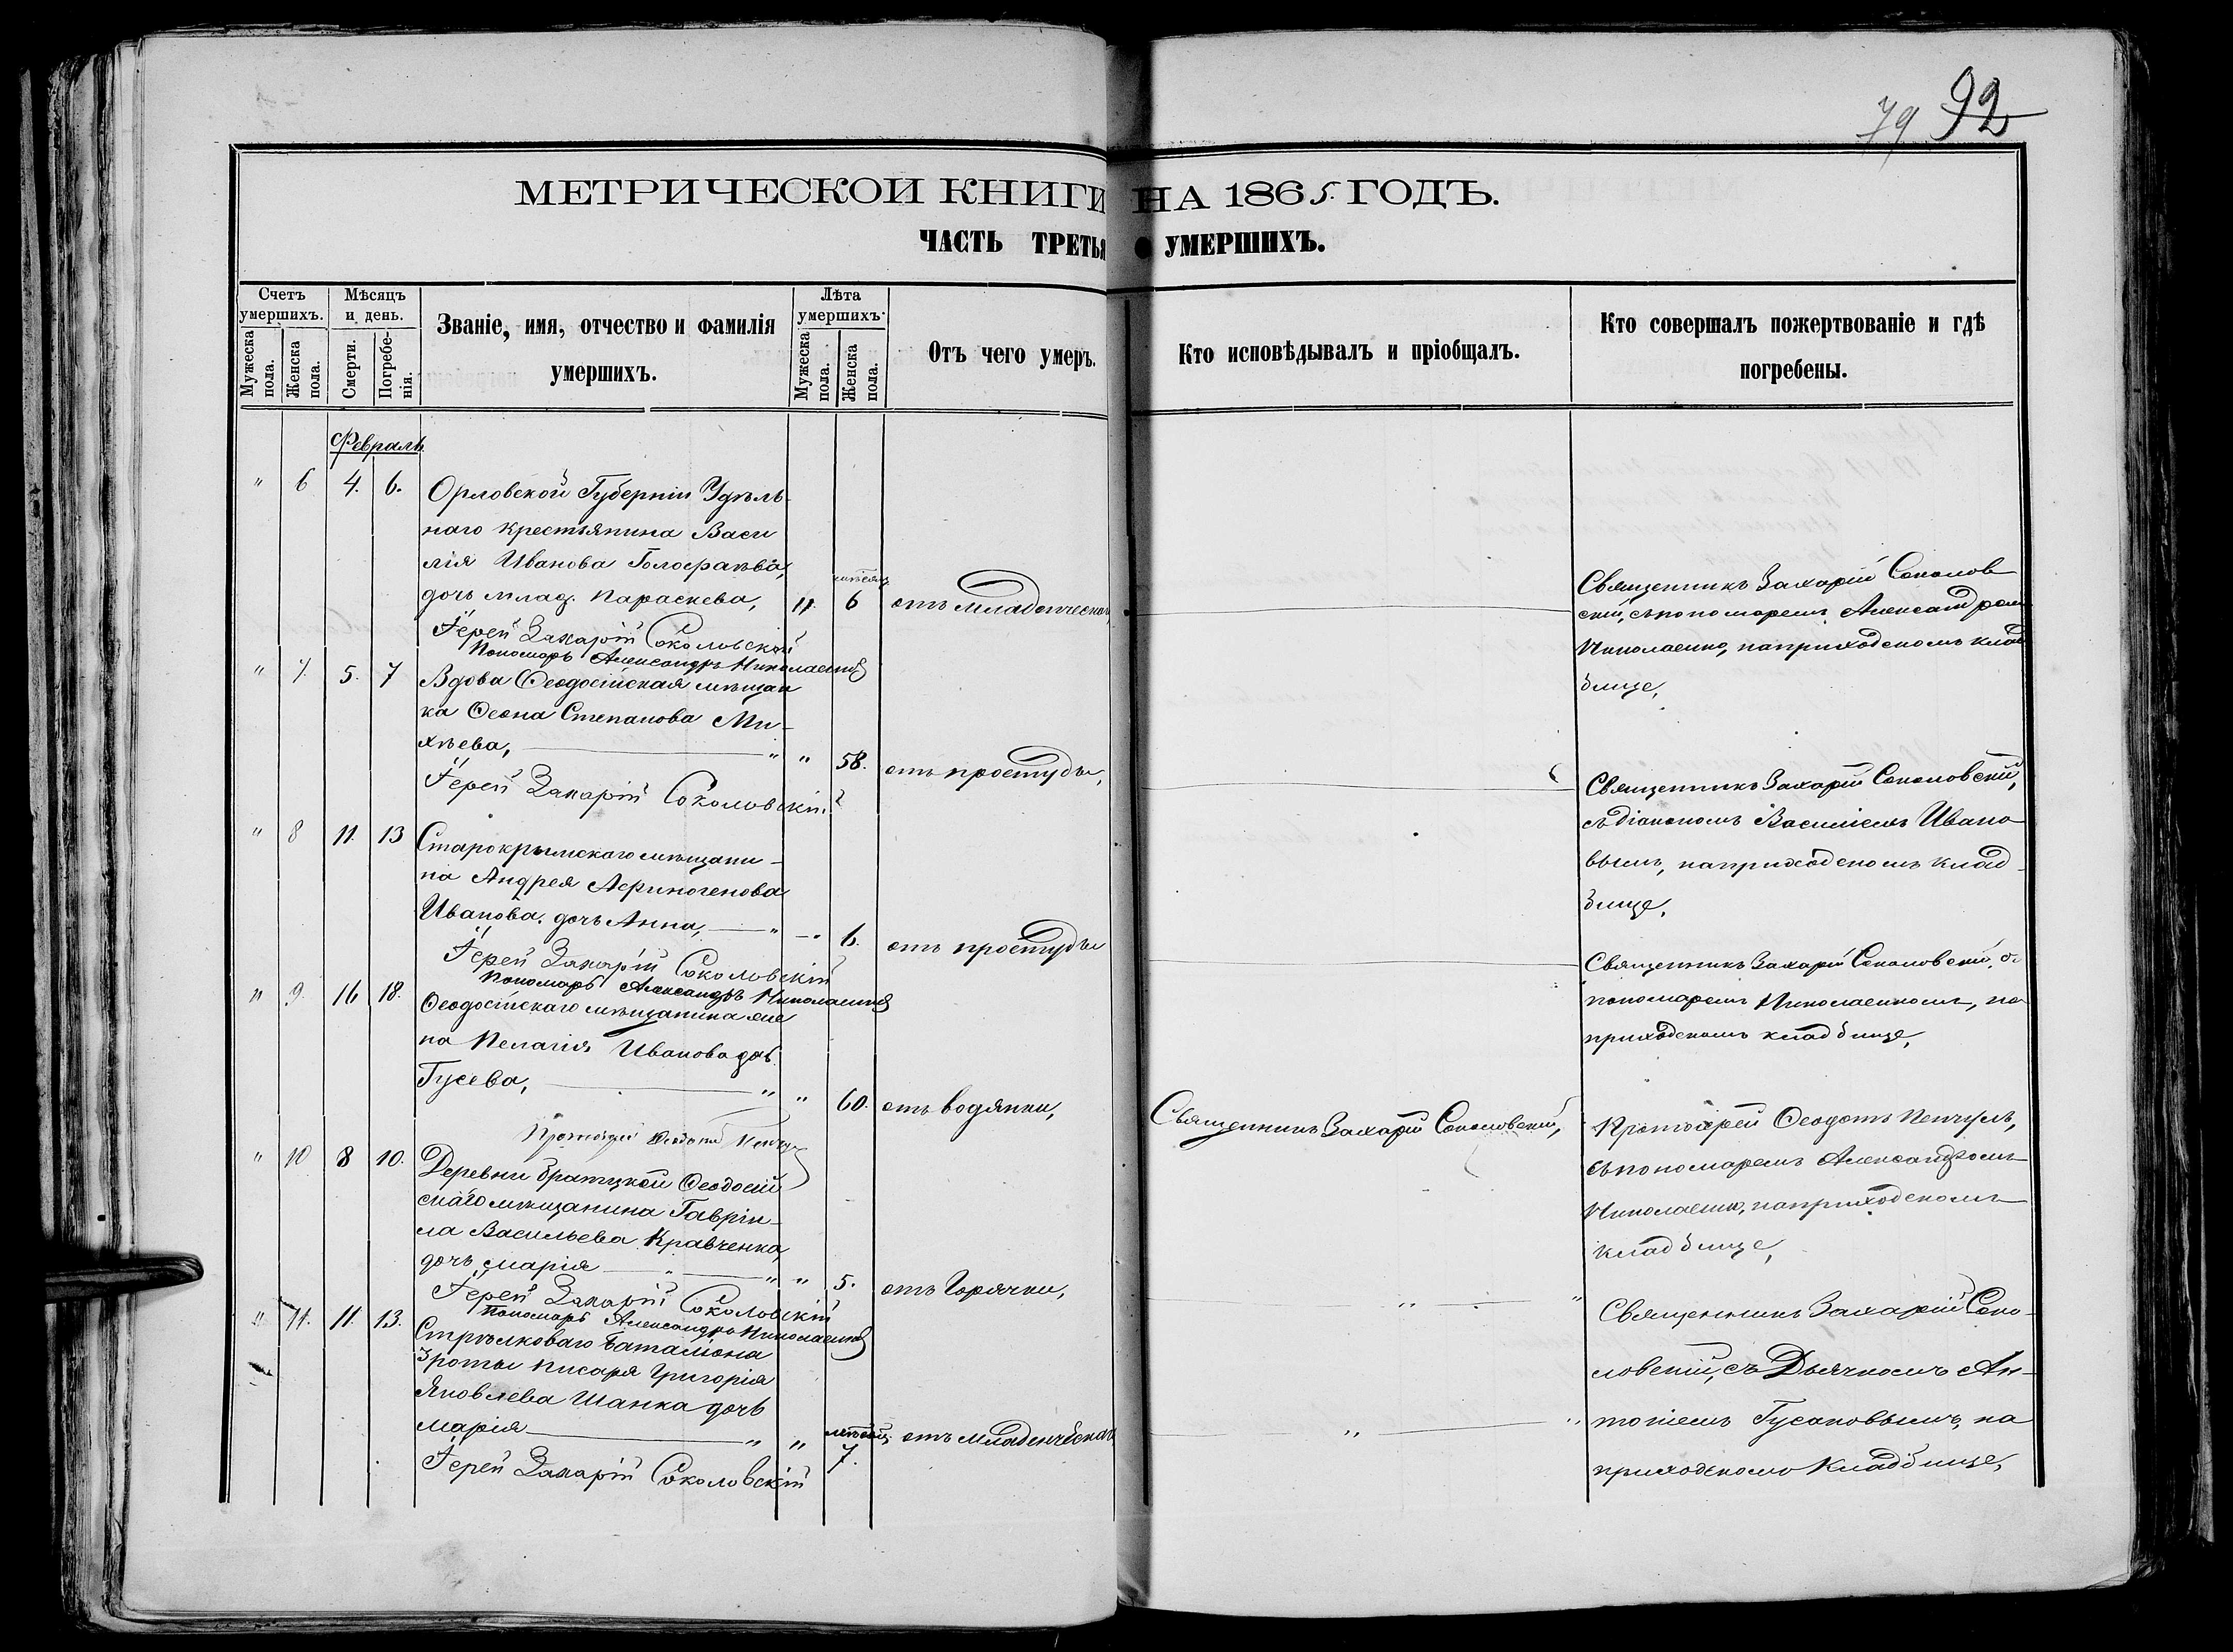 79 92
МЕТРИЧЕСКОЙ КНИГИ НА 1865 ГОДЪ.
ЧАСТЬ ТРЕТЬЯ УМЕРШИХЪ.
Счетъ умершихъ.
Мужеска пола.
Женска пола.
Мѣсяцъ и день.
Смерти.
Погребенія.
Званіе, имя, отчество и фамилія
умершихъ.
Лѣта умершихъ.
Мужеска пола.
Женска пола.
Отъ чего умеръ.
Кто исповѣдывалъ и пріобщалъ.
Кто совершалъ пожертвованіе и гдѣ
погребены.
Февраль
" 6 4. 6. Орловской Губерніи Удѣль-
наго крестьянина Васи
лія Иванова
дочь млад. Параскева, " 6 отъ младенческой,
Іерей Захарій Соколовскій
Пономарь Александръ Николаенко
Священникъ Захарій Соколов
скій, съ пономаремъ Александромъ
Николаенко, на приходскомъ клад
бище,
" 7. 5. 7 Вдова Ѳеодосійская мѣщан
ка Степанова Ми-
хѣева, " " 58. отъ простуды,
Іерей Захарій Соколовскій
Священникъ Захарій Соколовскій,
съ діакономъ Василіемъ Ивано
вымъ, на приходскомъ клад-
бище,
" 8 11. 13 Старокрымскаго мѣщани-
на Андрея Афиногенова
Иванова. дочь Анна, " " 6. отъ простуды
Іерей Захарій Соколовскій
Пономарь Александръ Николаенко
Священникъ Захарій Соколовскій, съ
пономаремъ Николаенкомъ, на
приходскомъ кладбище,
" 9. 16 18. Ѳеодосійскаго мѣщанина же
на Пелагія Иванова
Гусева, " " 60. отъ водянки,
Священникъ Захарій Соколовскій,
Протоіерей Ѳеодотъ
Протоіерей Ѳеодотъ
съ пономаремъ Александромъ
Николаенко, на приходскомъ
кладбище,
" 10 8 10. Деревни Братцкой Ѳеодосій
скаго мѣщанина Гавріи-
ла Васильева Кравченка,
дочь Марія " " 5. отъ горячки,
Іерей Захарій Соколовскій
Пономарь Александръ Николаенко
Священникъ Захарій Соко-
ловскій, съ Дьячкомъ Ан-
тоніемъ Гусаковымъ, на
приходскомъ кладбище,
" 11. 11. 13. Стрѣлковаго Баталіона
3 роты писаря Григорія
Яковлева Шанка дочь
Марія " " мѣсяц. 7. отъ младенческой
Іерей Захарій Соколовскій